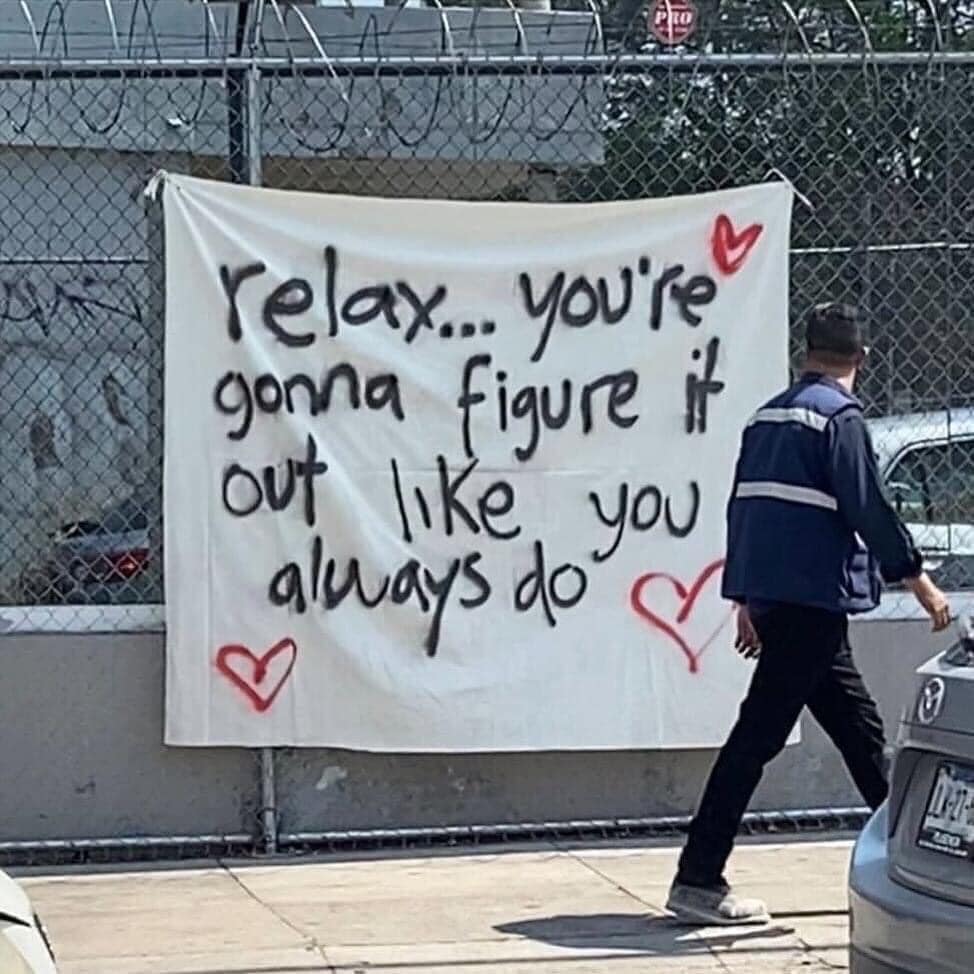 PRO
relax... you're
gonna figure it
out like you
always do